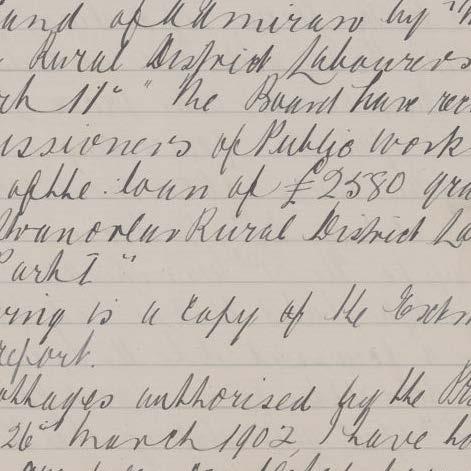 and of Admiran by
Rural District Labourers
rch 11" "The Board have rec
issioners of Public Work
of the loan of £2580 gra
tranorlar Rural District La
Part I"
ving is a copy of the Extr
report.
ottages authorised by the
26th March 1902, I have